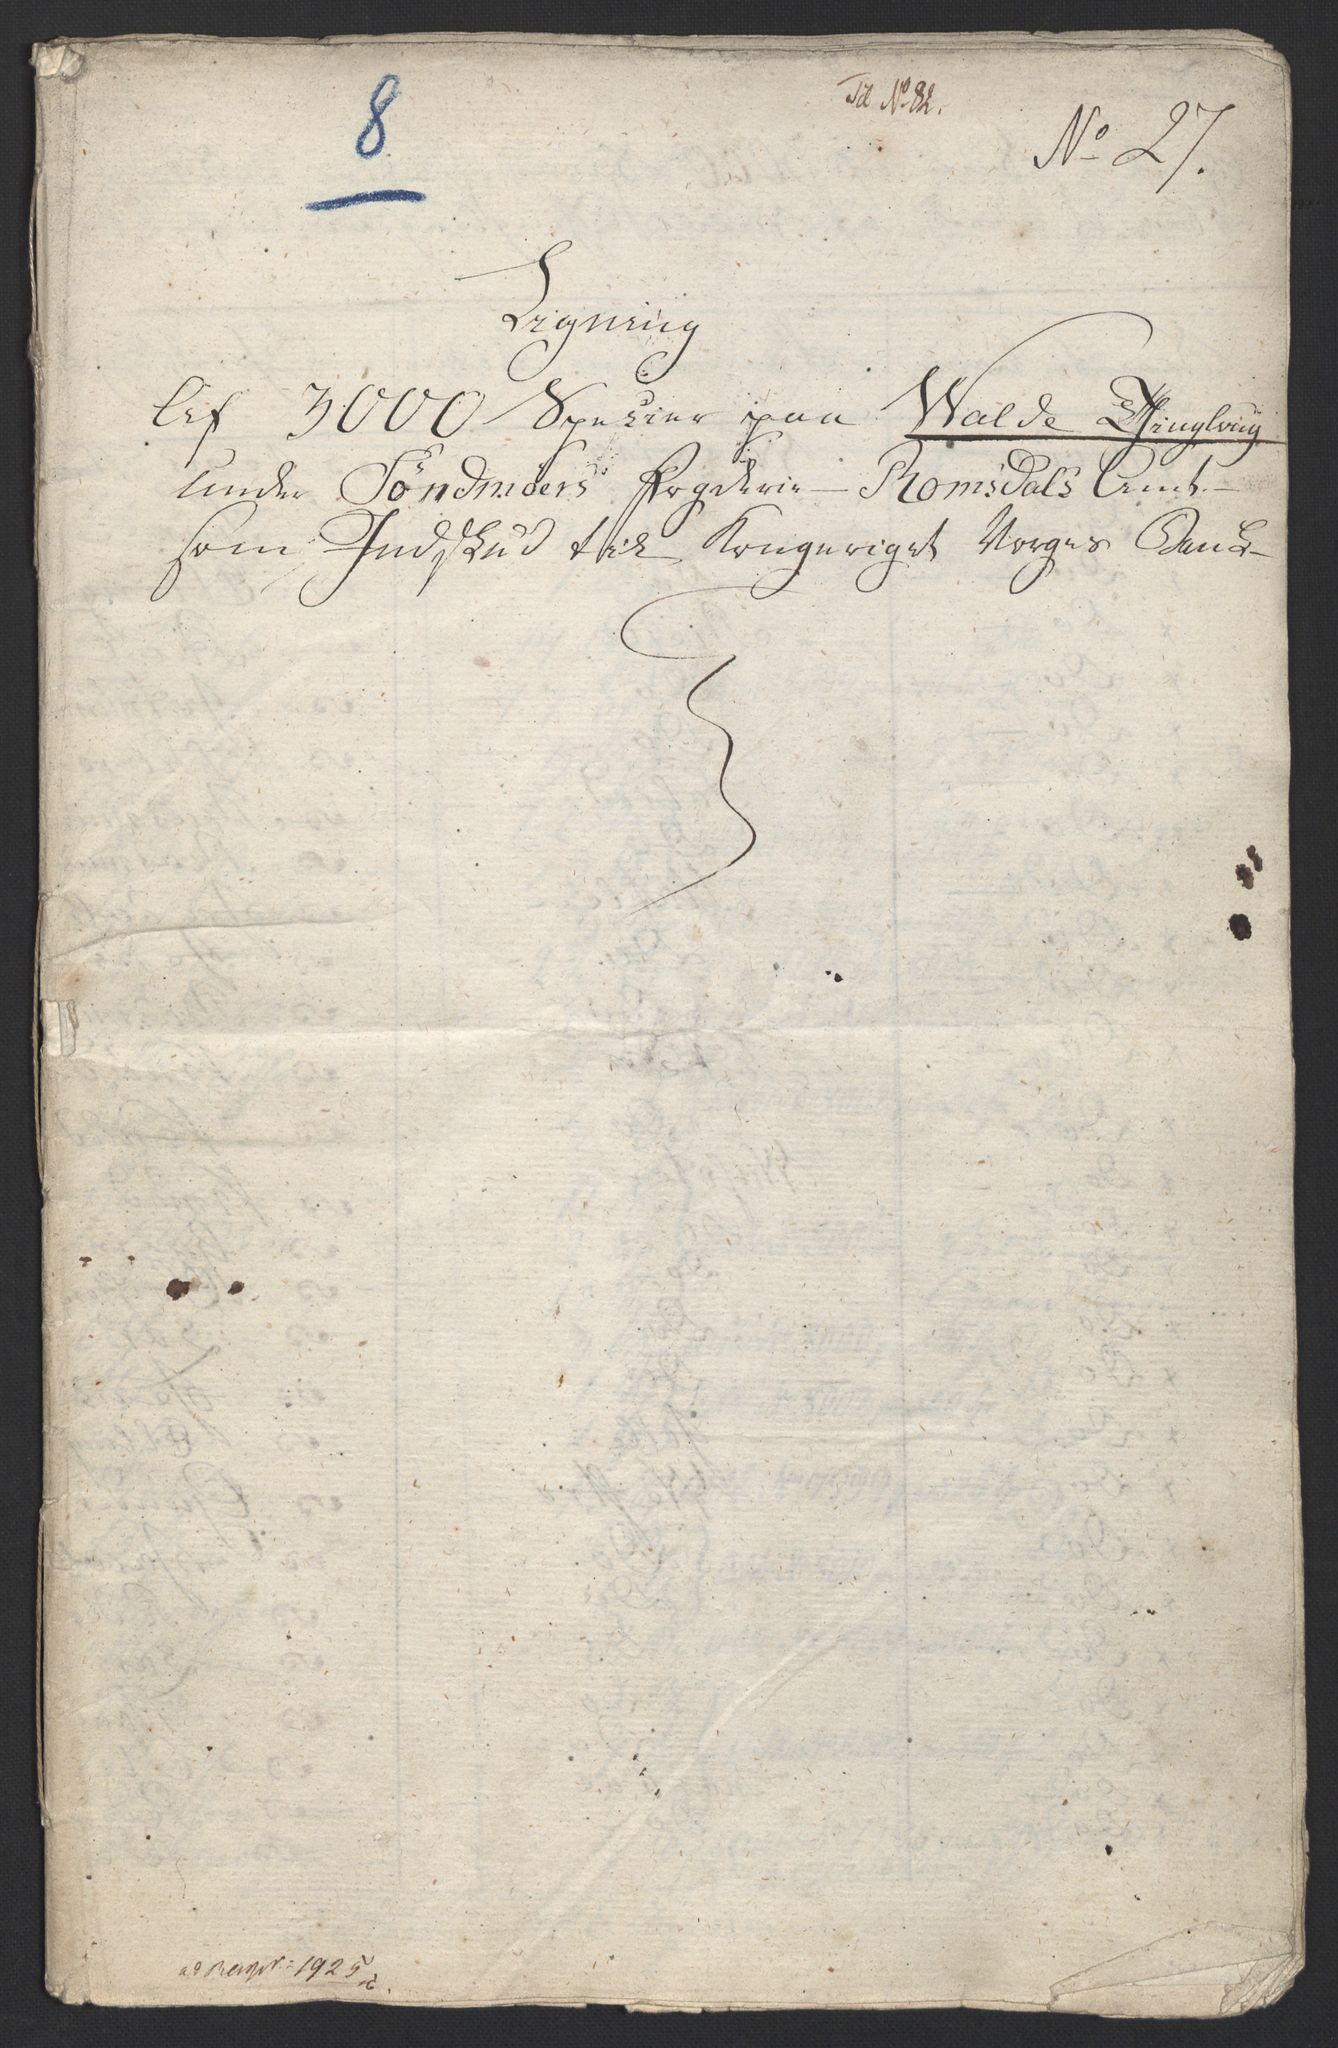 8
Til No 82.
No 27.
Ligning
Af 3000 Specier paa Walde Thinglaug
under Söndmöers Fogderie - Romsdals Amt -
som Indskud til Kongeriget Norges Bank -
1925